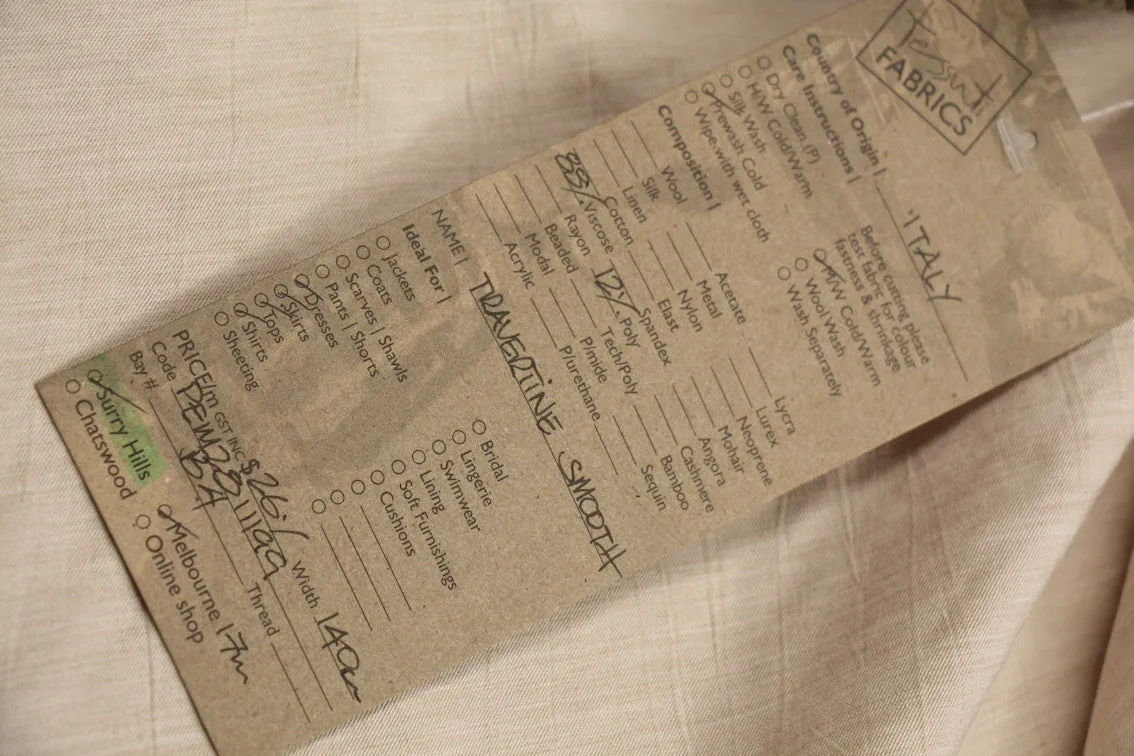 Tessuti
FABRICS
Country of Origin | ITALY
Care Instructions |
Before cutting please
test fabric for colour
fastness & shrinkage
Dry Clean (P)
H/W Cold/Warm
Silk Wash
Prewash Cold
Wipe with wet cloth
H/W Cold/Warm
Wool Wash
Wash Separately
Composition |
Wool
Silk
Linen
Cotton
88% Viscose
Rayon
Beaded
Modal
Acrylic
Acetate
Metal
Nylon
Elast
Spandex
12% Poly
Tech/Poly
P/mide
P/urethane
Lycra
Lurex
Neoprene
Mohair
Angora
Cashmere
Bamboo
Sequin
NAME | TRAVERTINE SMOOTH
Ideal For |
Jackets
Coats
Scarves | Shawls
Pants | Shorts
Dresses
Skirts
Tops
Shirts
Sheeting
Bridal
Lingerie
Swimwear
Lining
Soft Furnishings
Cushions
PRICE/m GST INC $ 26.- Width 140cm
Code
Thread
Bay # B4
Surry Hills
Melbourne 17m
Chatswood
Online shop